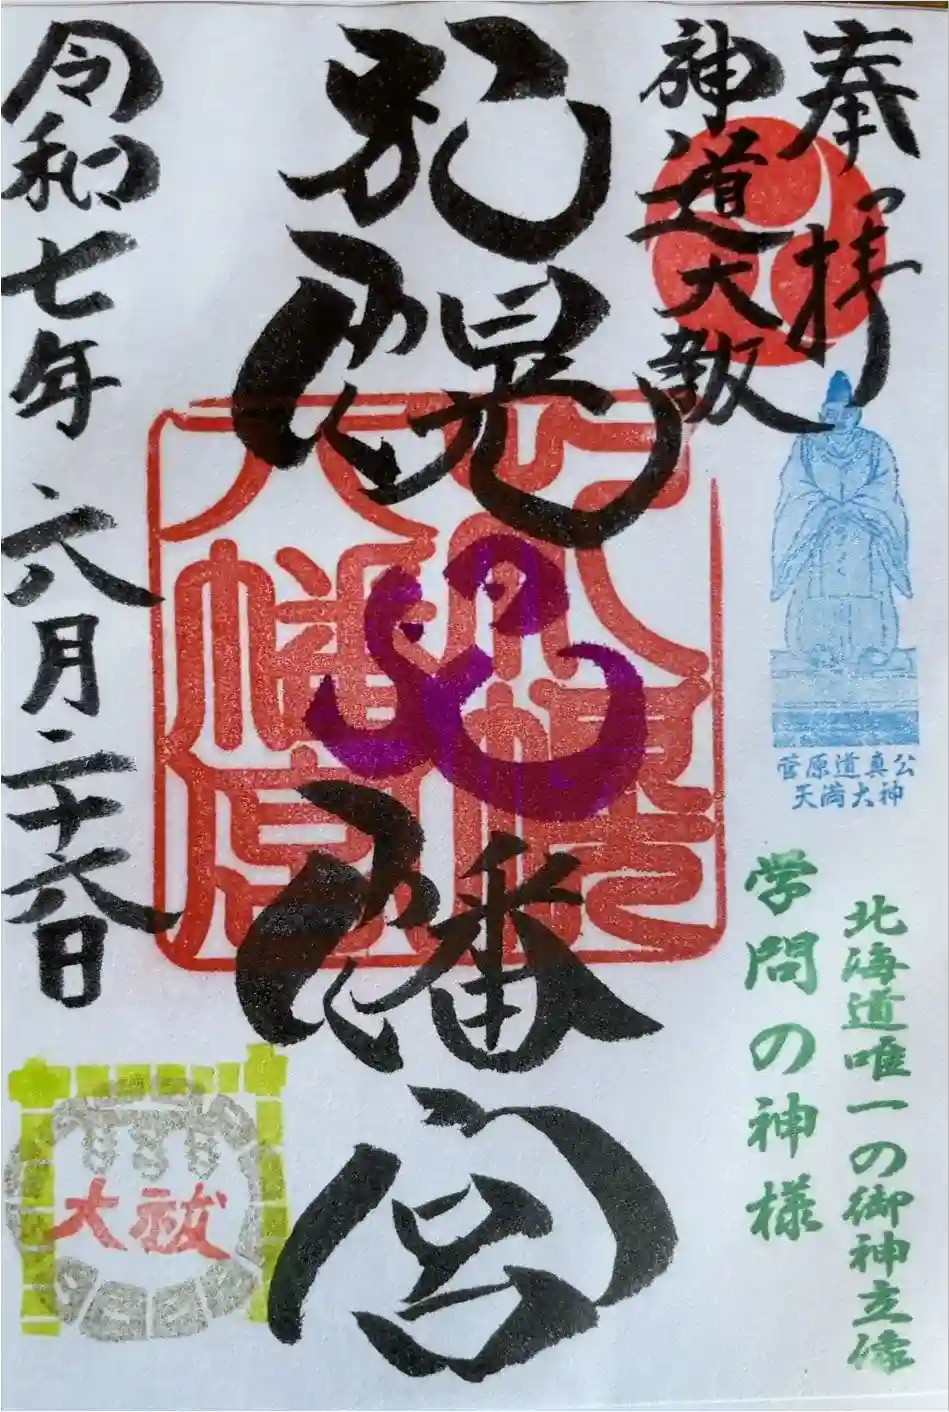 奉拝
神道大教
札幌八幡宮
八幡宮
令和七年六月二十六日
菅原道真公
天満大神
北海道唯一の御神立像
学問の神様
大祓